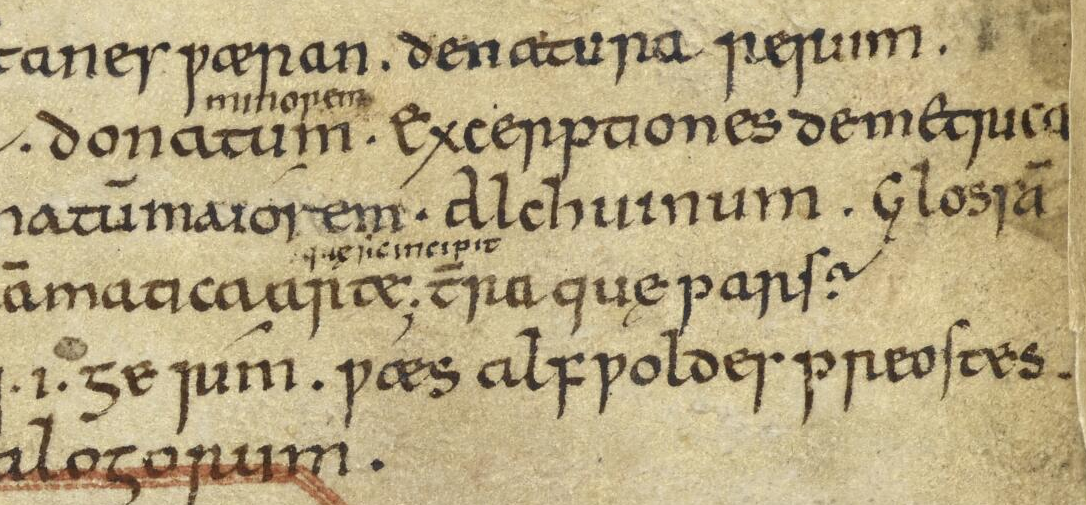 tanes ƿæran. denatura rerum.
minorem
. donatum. Excerptiones demetrica
natū maiorem. Alchuinum. Glossā
quę sic incipit
āmatica arte; t̄ra quę pars?
.i. ge rum. ƿæs alfƿoldes preostes.
alogorum.